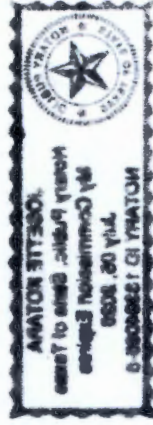 NOTARY PUBLIC
STATE OF TEXAS
JOSETTE KOTAMA
Notary Public, State of Texas
My Commission Expires
July
NOTARY ID